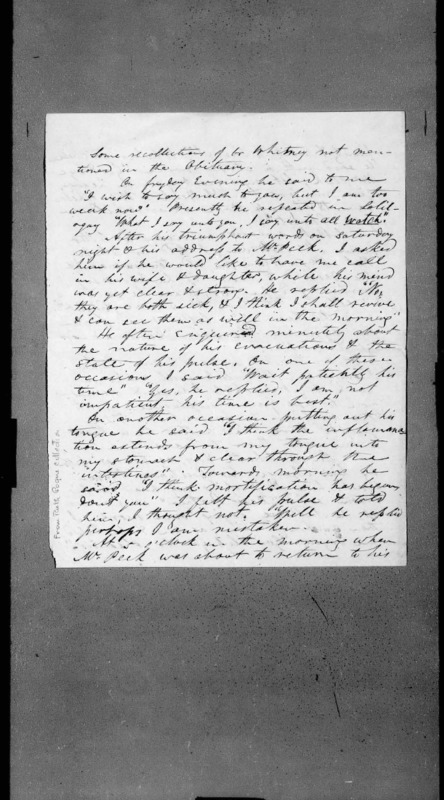 Some recollections of br Whitney not men-
tioned in the Obituary.
On fryday Evening he said to me
"I wish to say much to you, but I am too
weak now". Presently he repeated in solil-
oquy "What I say unto you, I say unto all watch".
After his triumphant words on Saturday
night & his address to Mr Peck, I asked
him if he would like to have me call
in his wife & daughter, while his mind
was yet clear & strong. He replied "No,
they are both sick, & I think I shall revive
& can see them as well in the morning"
He often enquired minutely about
the nature of his evacuations & the
state of his pulse. On one of these
occasions I said "Wait patiently his
time" "Yes, he replied, I am not
impatient his time is best."
On another occasion putting out his
tongue he said "I think the inflamma-
tion extends from my tongue into
my stomach & clear through the
intestines". Towards morning he
said "I think mortification has begun,
don't you". I felt his pulse & told
him, I thought not, "Well he replied
perhaps I am mistaken.
At o'clock in the morning when
Mr Peck was about to return to his
From Ruth Rogers collection